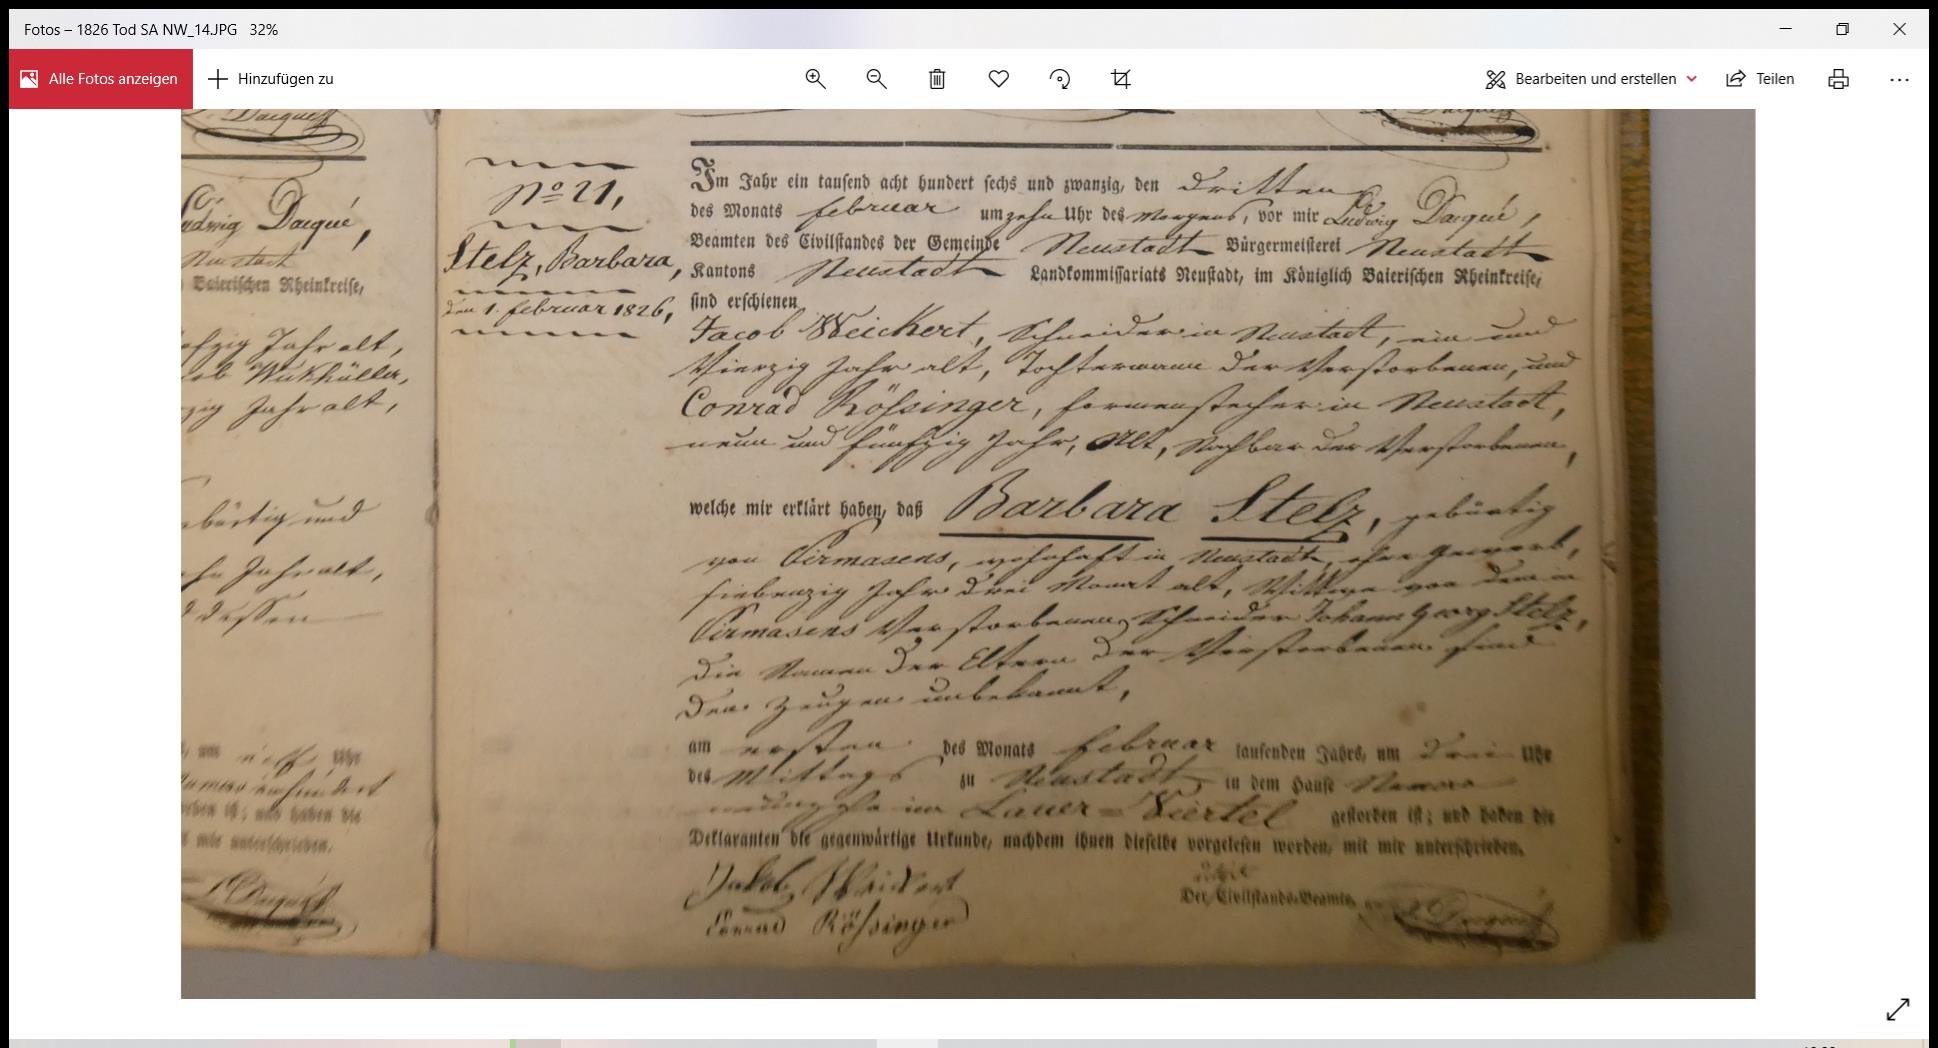 Fotos – 1826 Tod SA NW_14.JPG 32%
Alle Fotos anzeigen
Hinzufügen zu
Bearbeiten und erstellen
Teilen
Dacqué
Ludwig Dacqué,
Neustadt
Baierischen Rheinkreise,
Jahr alt,
Jahr alt,
gebürtig und
Jahr alt,
dessen
Uhr
ist; und haben die
mir unterschrieben.
Dacqué
No 21,
Stelz, Barbara,
den 1. februar 1826,
Dacqué
Im Jahr ein tausend acht hundert sechs und zwanzig, den dritten
des Monats februar um zehn Uhr des Morgens, vor mir Ludwig Dacqué,
Beamten des Civilstandes der Gemeinde Neustadt Bürgermeisterei Neustadt
Kantons Neustadt Landkommissariats Neustadt, im Königlich Baierischen Rheinkreise,
sind erschienen
Jacob Weickert, Schneider in Neustadt, ein und
Vierzig Jahr alt, Tochtermann der Verstorbenen, und
Conrad Rößinger, formenstecher in Neustadt,
neun und fünfzig Jahr, Alt, Nachbar der Verstorbenen,
welche mir erklärt haben, daß Barbara Stelz, gebürtig
von Pirmasens, wohnhaft in Neustadt, ohne Gewerb,
siebenzig Jahr drei Monat alt, Wittwe von dem in
Pirmasens Verstorbenen Schneider Johann Georg Stelz,
die Namen der Eltern der Verstorbenen sind
den Zeugen unbekannt,
am ersten des Monats februar laufenden Jahrs, um drei Uhr
des Mittags zu Neustadt in dem Hause Numero
neunzehn im Lauer=Viertel gestorben ist; und haben die
Deklaranten die gegenwärtige Urkunde, nachdem ihnen dieselbe vorgelesen worden, mit mir unterschrieben.
Jakob Weickert
Conrad Rößinger
Der Civilstands-Beamte,
Dacqué